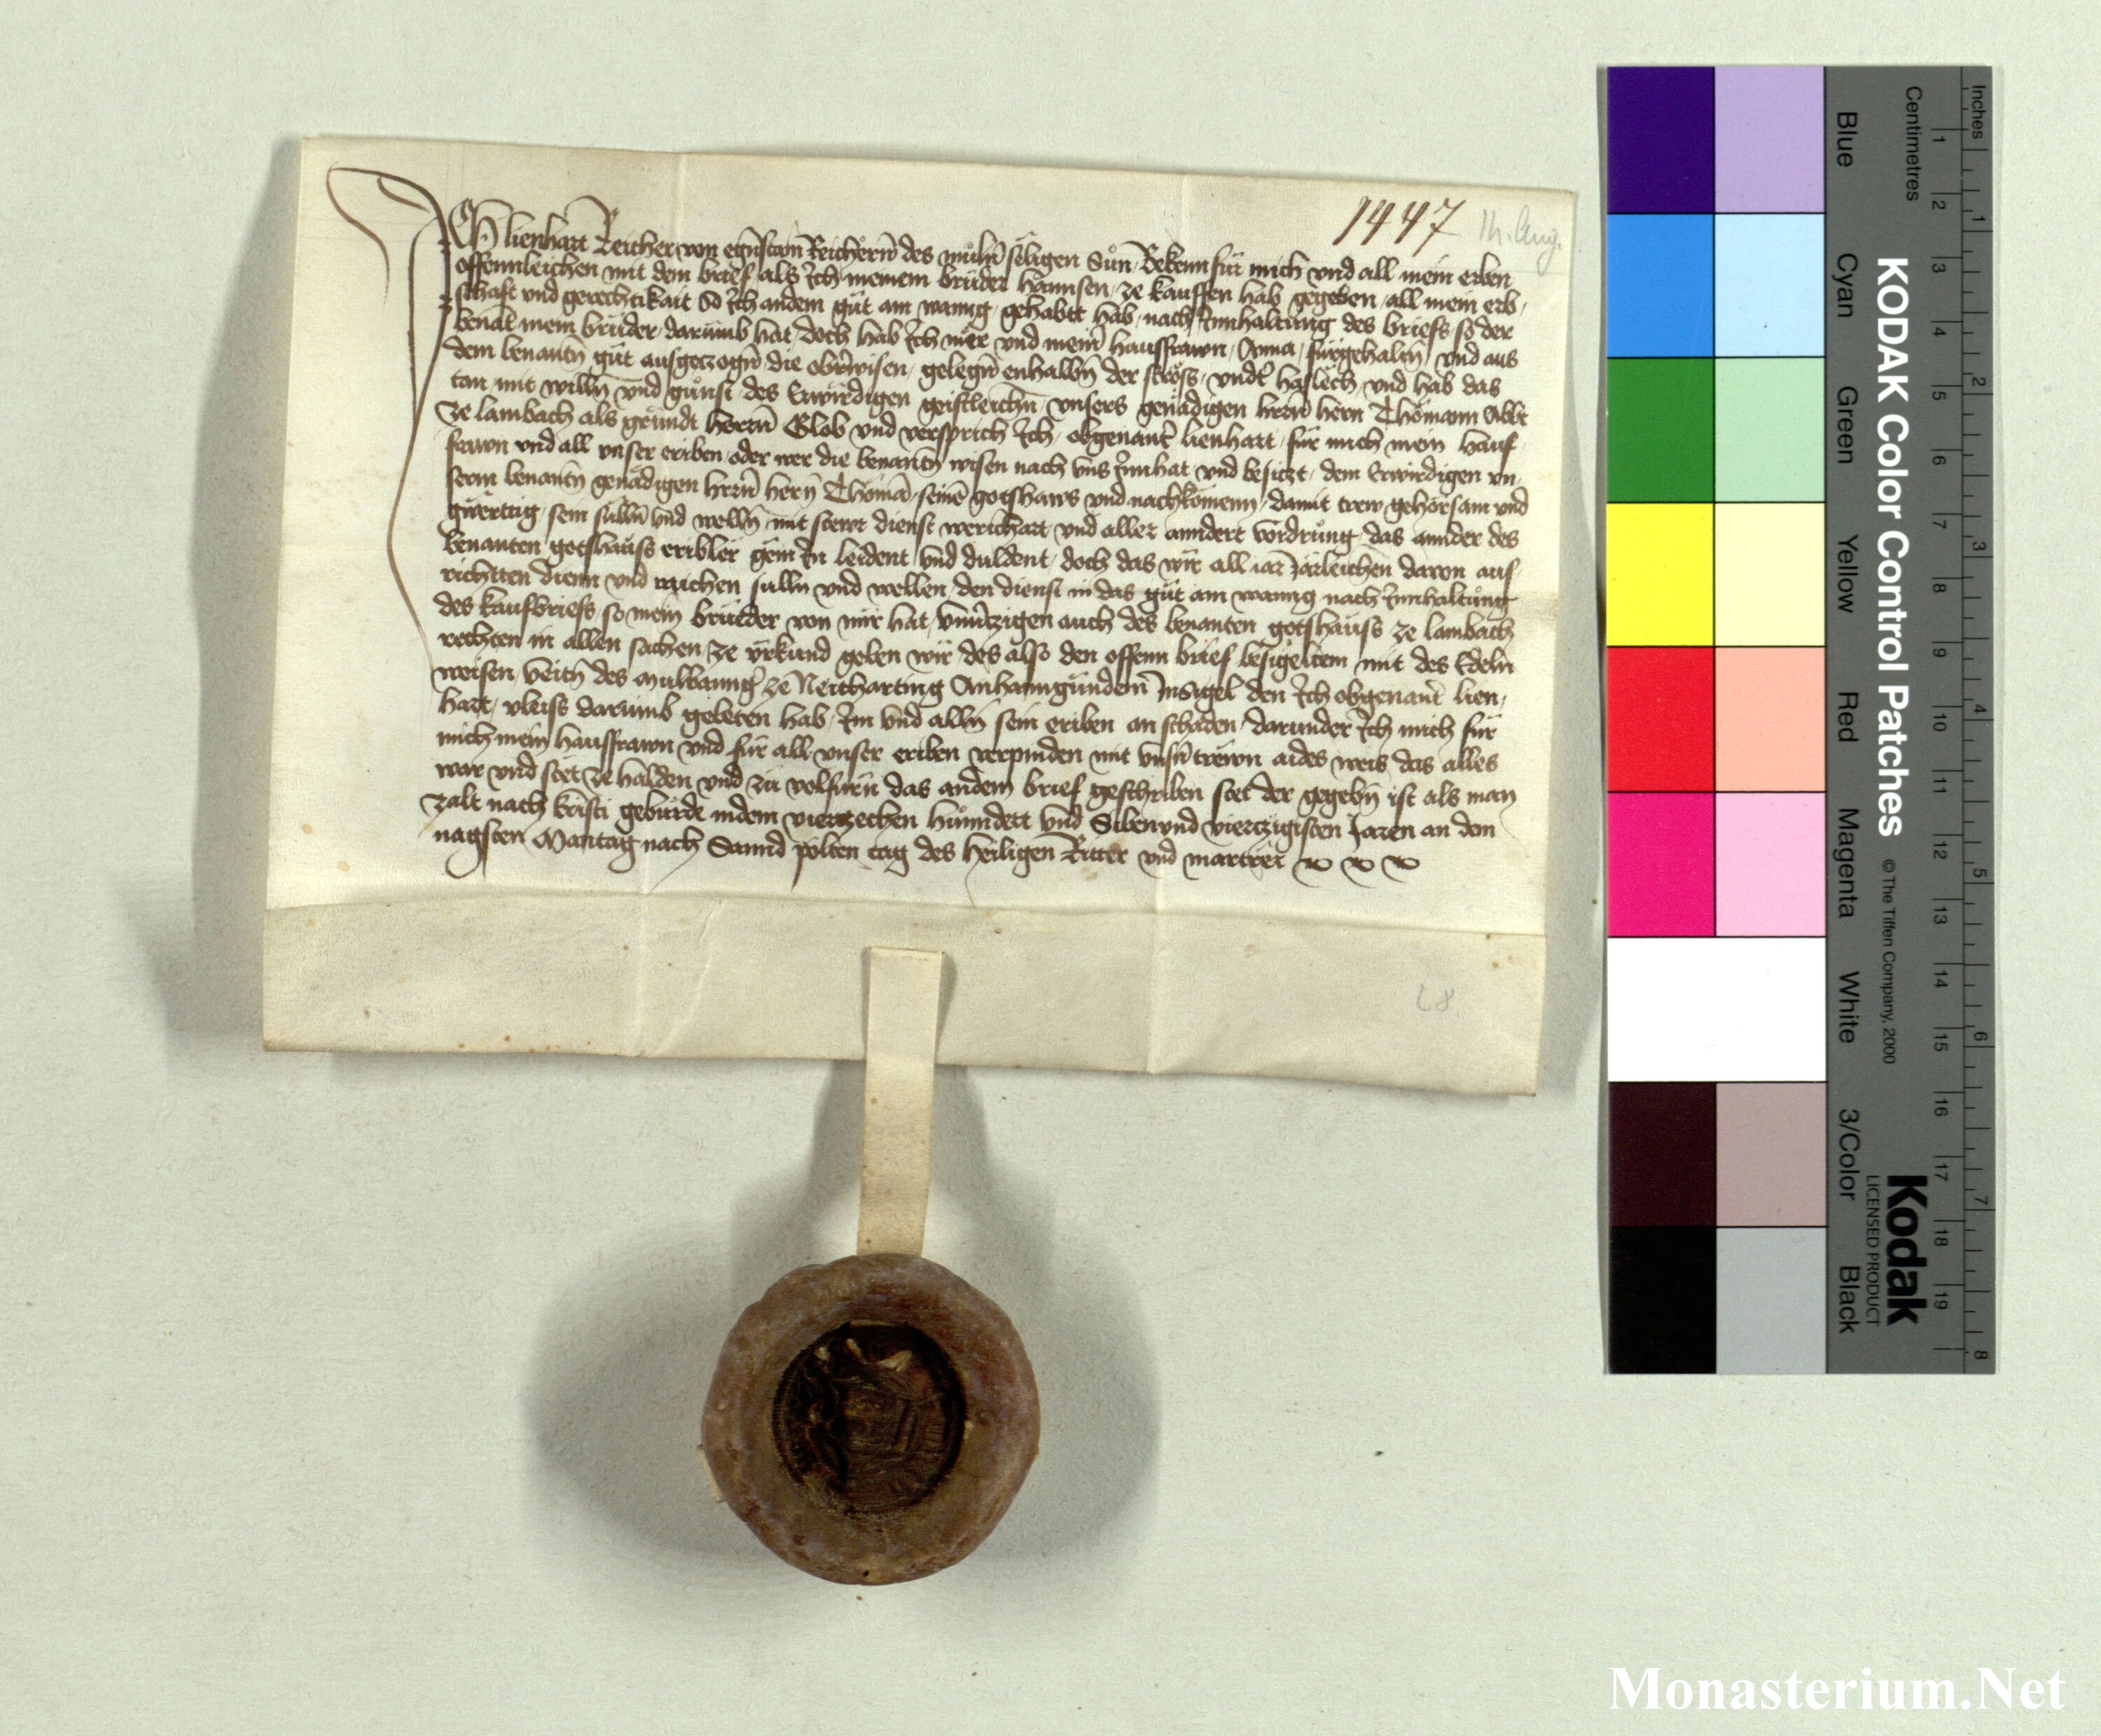 1447 14. Aug.
Ich lienhart Reicher von egnstain Reichern des müln säligen Sün Bekenn für mich vnd all mein erben
offennleichen mit dem brief als Ich meinem brüder Hannsen ze kauffen hab gegeben all mein erb,
schaft vnd gerechtikait So Ich an dem güt am wanng gehabtt hab nach Innhaltüng des briefs so der
benāt mein brüder darümb hat doch hab Ich mir vnd mein̄ hausfrawn Anna fürgehaltn̄ vnd aus
dem benantn̄ güt ausgeczogn̄ die obr̄wisen gelegn̄ enhalbn̄ der vndt̄ haslech vnd hab das
tan mit willn̄ vnd günst des Erwirdigen geistleichn̄ vnsers genädigen hern̄ hern Thoman Abbt
ze lambach als gründt herrn̄ Glob vnd versprich Ich obgenant̄ lienhart für mich mein hauf
frawn vnd all vnser eriben oder wer die benantn̄ wisen nach vns Innhat vnd besiczt dem Erwirdigen vn,
serm benantn̄ genädigen hern̄ hern̄ Thomā seinē gotshaws vnd nachkömenn damit trew gehorsam vnd
gwërttig sein sülln̄ vnd welln̄ mit stewr dienst werichart vnd aller anndert vordrüng das annder des
benanten gotshauss eribler gëin In leident vnd duldent doch das wir all iar Järleichen dauon aus
richtten dienn vnd raichen sulln vnd wellen den dienst in das güt am wanng nach Innhaltüng
des kaufbriefs so mein brueder von mir hat vnuerzigen auch des benanten gotshauss ze lambach
rechten in allen sachen ze vrkund geben wir des also den offenn brief besigeltem mit des Edeln
weisen veitn̄ des Mulbanng̕ ze Neitharting Anhanngündem Insigel den Ich obgenant̄ lien,
hart vleiss darümb gebeten hab Im vnd alln̄ sein eriben an schaden darunder Ich mich für
mich mein hausfrawn vnd für all vnser eriben verpinden mit vnsn̄ trewn aides weis das alles
war vnd stët ze halden vnd zü volfürn das an dem brief geschriben stet der gegebn̄ ist als man
zalt nach kristi gebürde in dem vierzechen hünndert vnd Siben vnd vierczigisten Jaren an dem
nagsten Mantag nach Sannd polten tag des heiligen Ritter vnd martrër
28
KODAK Color Control Patches © The Tiffen Company, 2000
Kodak
LICENSED PRODUCT
Blue Cyan Green Yellow Red Magenta White 3/Color Black
Inches 1 2 3 4 5 6 7 8
Centimetres 1 2 3 4 5 6 7 8 9 10 11 12 13 14 15 16 17 18 19
Monasterium.Net